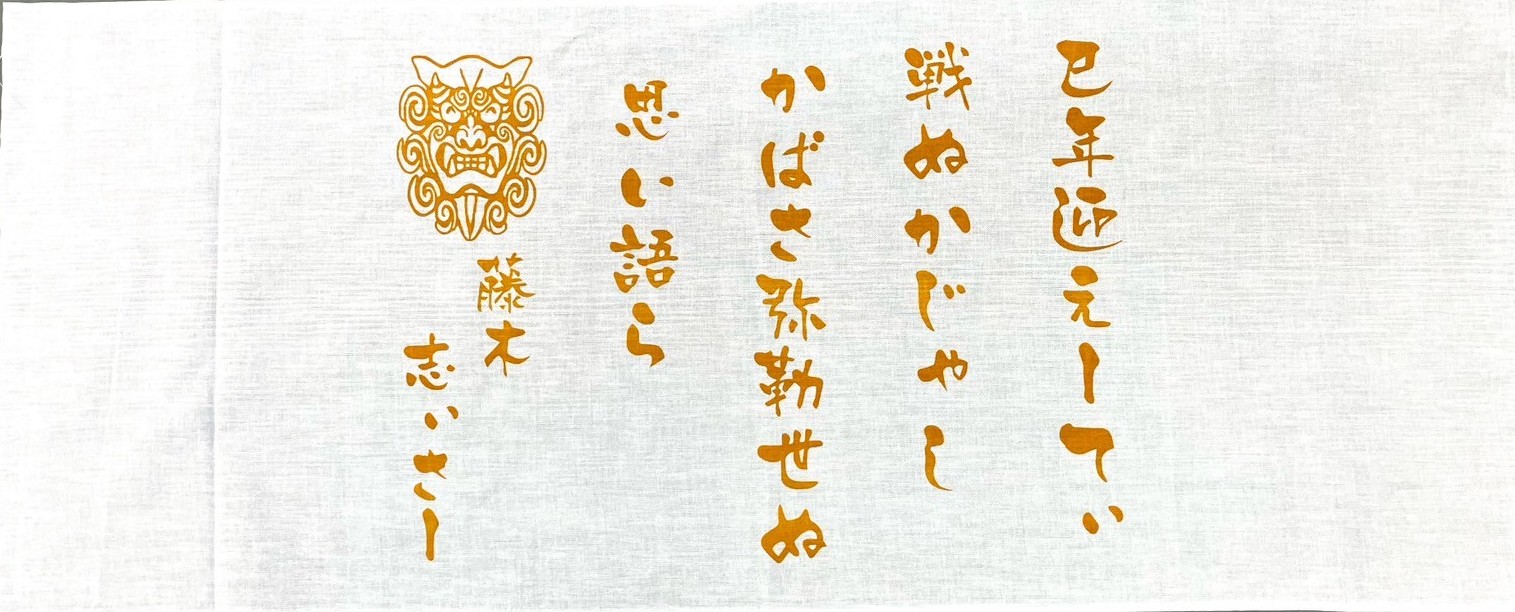 巳年迎えーてぃ
戦ぬかじゃやし
かばさ弥勒世ぬ
思い語ら
藤木
志ぃさー